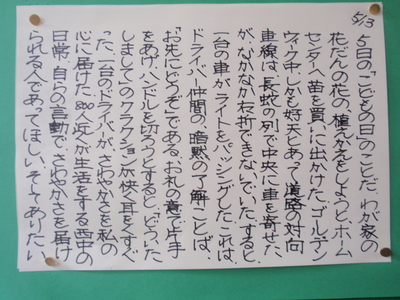 5/3
5日の「こどもの日」のことだ。わが家の
花だんの花の、植えかえをしようと、ホーム
センターへ苗を買いに出かけた。ゴールデン
ウィーク中、しかも好天とあって道路の対向
車線は、長蛇の列で中央に車を寄せた
が、なかなか右折できないでいた。すると、
一台の車がライトをパッシングした。これは、
ドライバー仲間の、暗黙の了解ことば、
「お先にどうぞ」である。お礼の意で片手
をあげ、ハンドルを切ろうとすると、「どういた
しまして」のクラクションが快く耳をくすぐ
った。一台のドライバーが、さわやかさを私の
心に届けた。800人近くが生活をする西中の
日常、自らの言動で、さわやかさを届け
られる人であってほしい。そしてありたい。